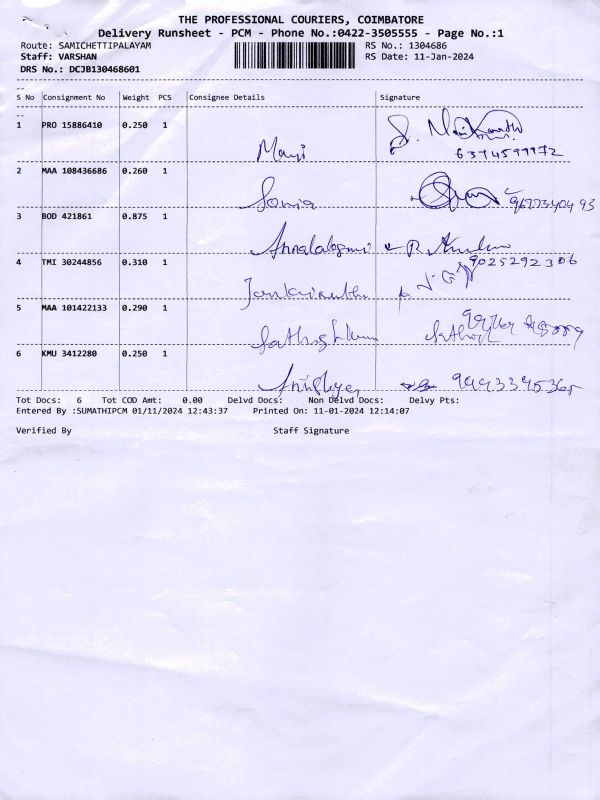 THE PROFESSIONAL COURIERS, COIMBATORE
Delivery Runsheet - PCM - Phone No.:0422-3505555 - Page No.:1
Route: SAMICHETTIPALAYAM RS No.: 1304686
Staff: VARSHAN RS Date: 11-Jan-2024
DRS No.: DCJB130468601
S No Consignment No Weight PCS Consignee Details Signature
1 PRO 15886410 0.250 1
Mani 6374599972
2 MAA 108436686 0.260 1
Sonia
3 BOD 421861 0.875 1
9025292306
4 TMI 30244856 0.310 1
5 MAA 101422133 0.290 1
6 KMU 3412280 0.250 1
Tot Docs: 6 Tot COD Amt: 0.00 Delvd Docs: Non Delvd Docs: Delvy Pts:
Entered By :SUMATHIPCM 01/11/2024 12:43:37 Printed On: 11-01-2024 12:14:07
Verified By Staff Signature